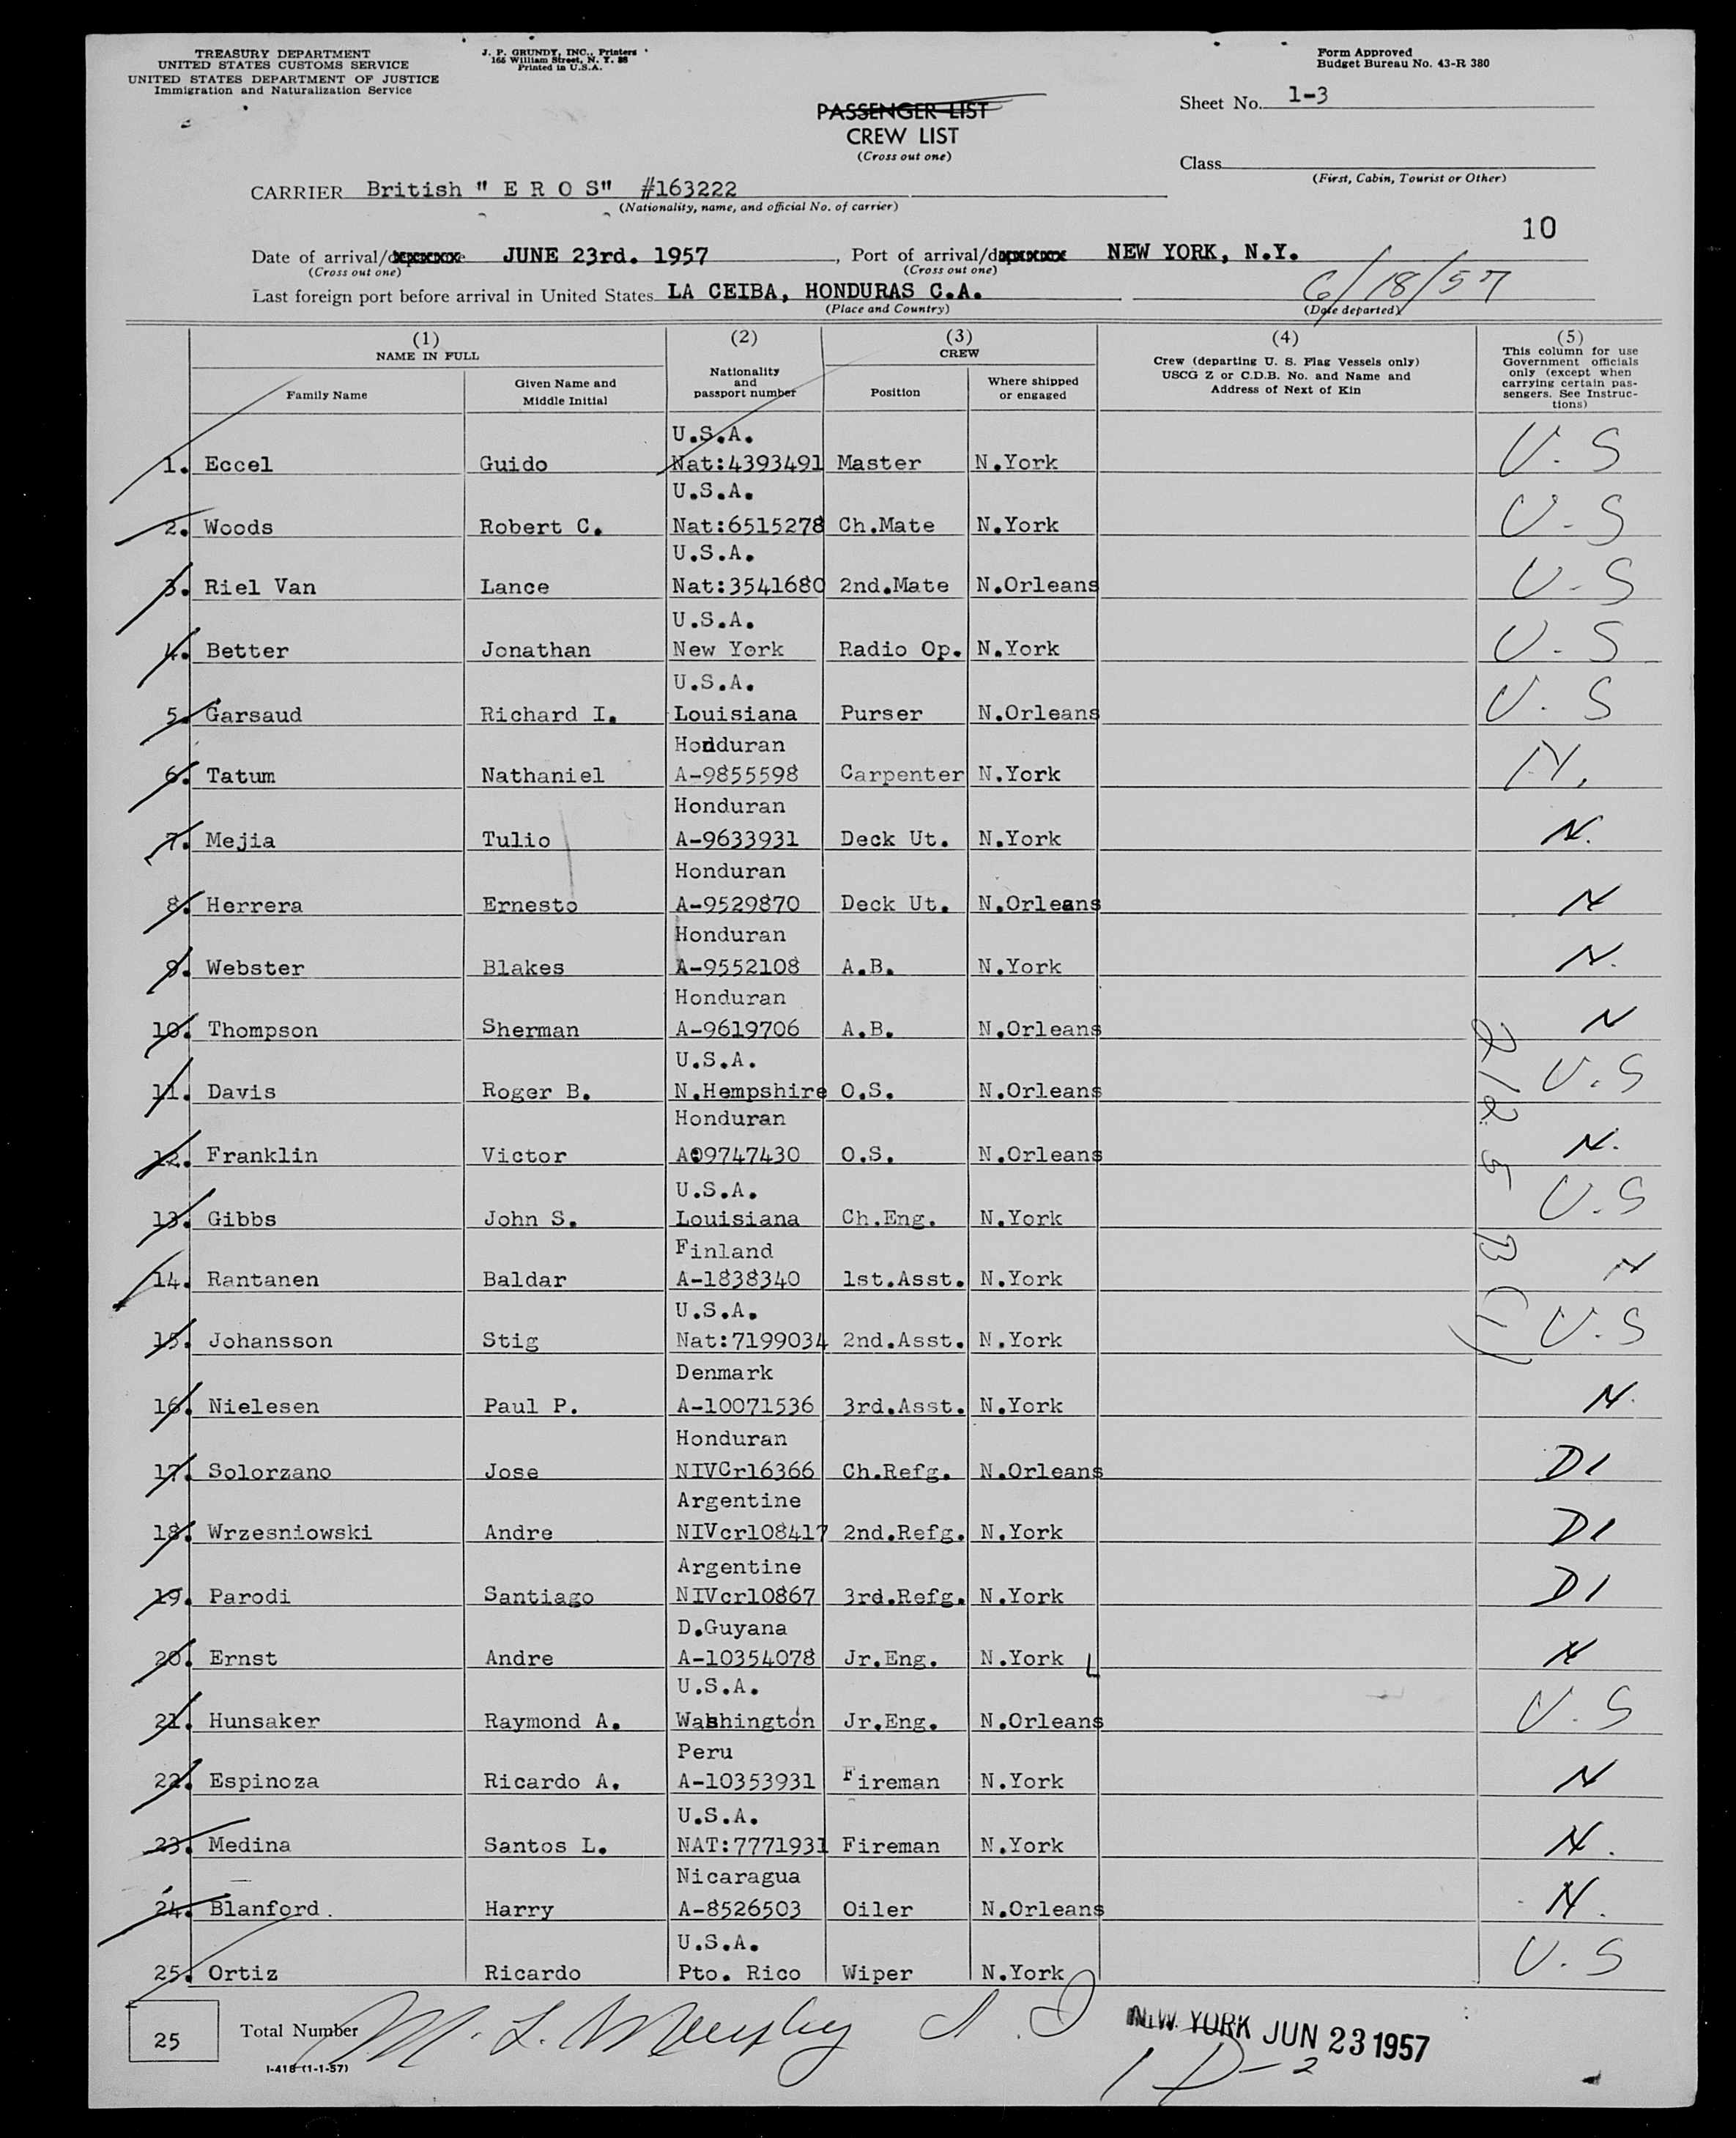 TREASURY DEPARTMENT
UNITED STATES CUSTOMS SERVICE
UNITED STATES DEPARTMENT OF JUSTICE
Immigration and Naturalization Service
J. P. GRUNDY, INC., Printers
165 William Street, N. Y. 38
Printed in U.S.A.
Form Approved
Budget Bureau No. 43-R 380
Sheet No. 1-3
PASSENGER LIST
CREW LIST
(Cross out one)
Class
(First, Cabin, Tourist or Other)
CARRIER British " E R O S" #163222
(Nationality, name, and official No. of carrier)
10
Date of arrival/departure JUNE 23rd. 1957, Port of arrival/departure NEW YORK, N.Y.
(Cross out one) (Cross out one)
Last foreign port before arrival in United States LA CEIBA, HONDURAS C.A. 6/18/57
(Place and Country) (Date departed)
(1) (2) (3) (4) (5)
NAME IN FULL
Family Name
Given Name and
Middle Initial
Nationality
and
passport number
CREW
Position
Where shipped
or engaged
Crew (departing U. S. Flag Vessels only)
USCG Z or C.D.B. No. and Name and
Address of Next of Kin
This column for use
Government officials
only (except when
carrying certain pas-
sengers. See Instruc-
tions)
U.S.A.
1. Eccel Guido Nat:4393491 Master N.York U.S
U.S.A.
2. Woods Robert C. Nat:6515278 Ch.Mate N.York U-S
U.S.A.
3. Riel Van Lance Nat:3541680 2nd.Mate N.Orleans U-S
U.S.A.
4. Better Jonathan New York Radio Op. N.York U.S
U.S.A.
5. Garsaud Richard I. Louisiana Purser N.Orleans U.S
Honduran
6. Tatum Nathaniel A-9855598 Carpenter N.York N.
Honduran
7. Mejia Tulio A-9633931 Deck Ut. N.York N.
Honduran
8. Herrera Ernesto A-9529870 Deck Ut. N.Orleans N
Honduran
9. Webster Blakes A-9552108 A.B. N.York N.
Honduran
10. Thompson Sherman A-9619706 A.B. N.Orleans N
U.S.A.
11. Davis Roger B. N.Hempshire O.S. N.Orleans U.S
Honduran
12. Franklin Victor A09747430 O.S. N.Orleans N.
U.S.A.
13. Gibbs John S. Louisiana Ch.Eng. N.York U.S
Finland
14. Rantanen Baldar A-1838340 1st.Asst. N.York N
U.S.A.
15. Johansson Stig Nat:7199034 2nd.Asst. N.York U.S
Denmark
16. Nielesen Paul P. A-10071536 3rd.Asst. N.York N.
Honduran
17. Solorzano Jose NIVCr16366 Ch.Refg. N.Orleans D1
Argentine
18. Wrzesniowski Andre NIVcr108417 2nd.Refg. N.York D1
Argentine
19. Parodi Santiago NIVcr10867 3rd.Refg. N.York D1
D.Guyana
20. Ernst Andre A-10354078 Jr.Eng. N.York N
U.S.A.
21. Hunsaker Raymond A. Washington Jr.Eng. N.Orleans U.S
Peru
22. Espinoza Ricardo A. A-10353931 Fireman N.York N
U.S.A.
23. Medina Santos L. NAT:7771931 Fireman N.York N.
Nicaragua
24. Blanford. Harry A-8526503 Oiler N.Orleans N.
U.S.A.
25. Ortiz Ricardo Pto. Rico Wiper N.York U.S
2125 B (1)
25 Total Number M. L. Murphy
NEW YORK JUN 23 1957
I-418 (1-1-57)